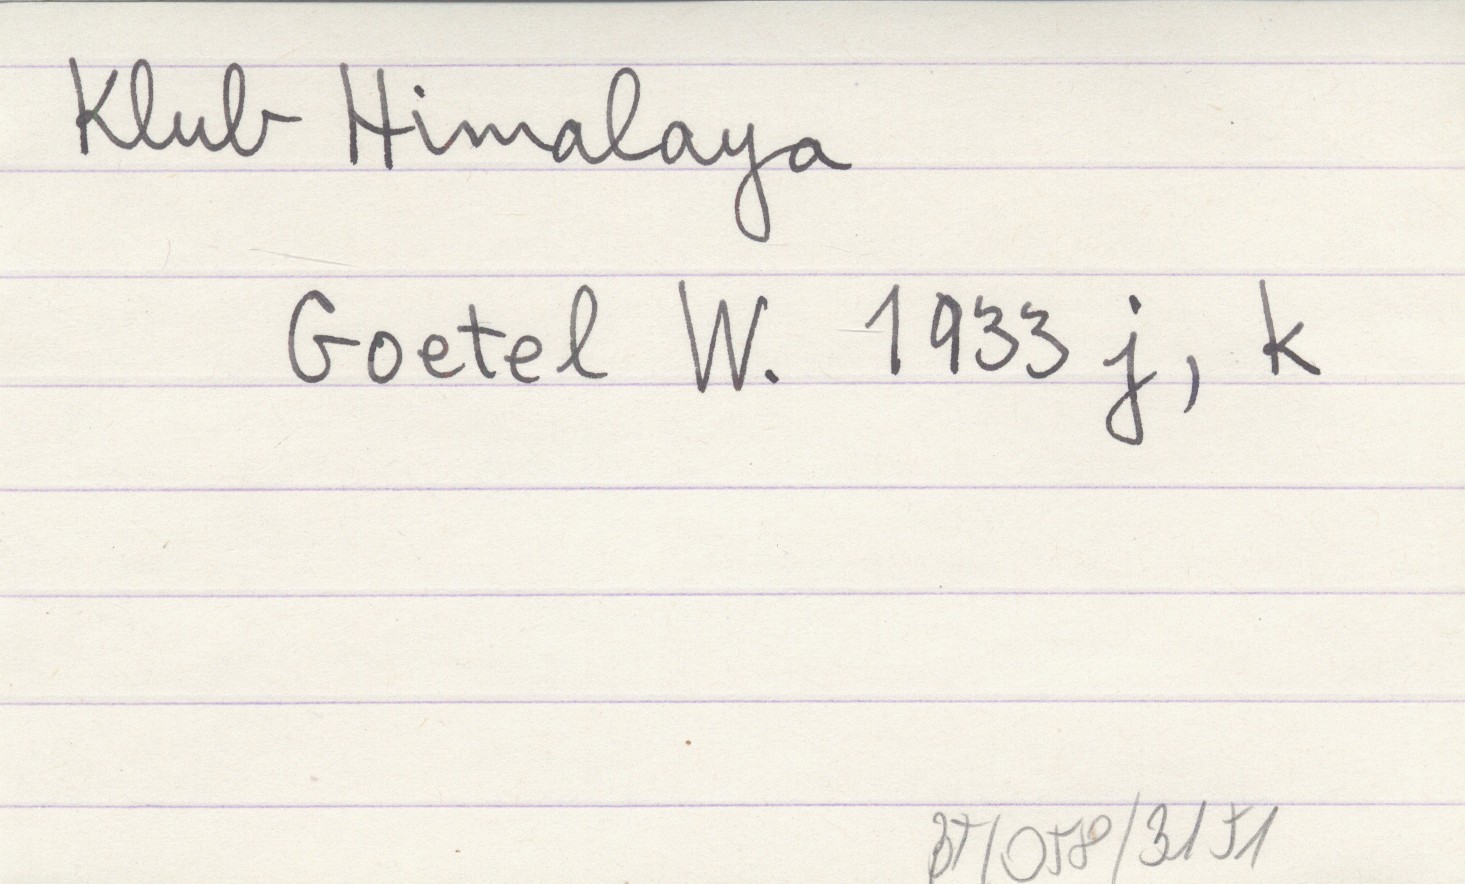 Klub Himalaya
Goetel W. 1933 j, k
BT/058/3151